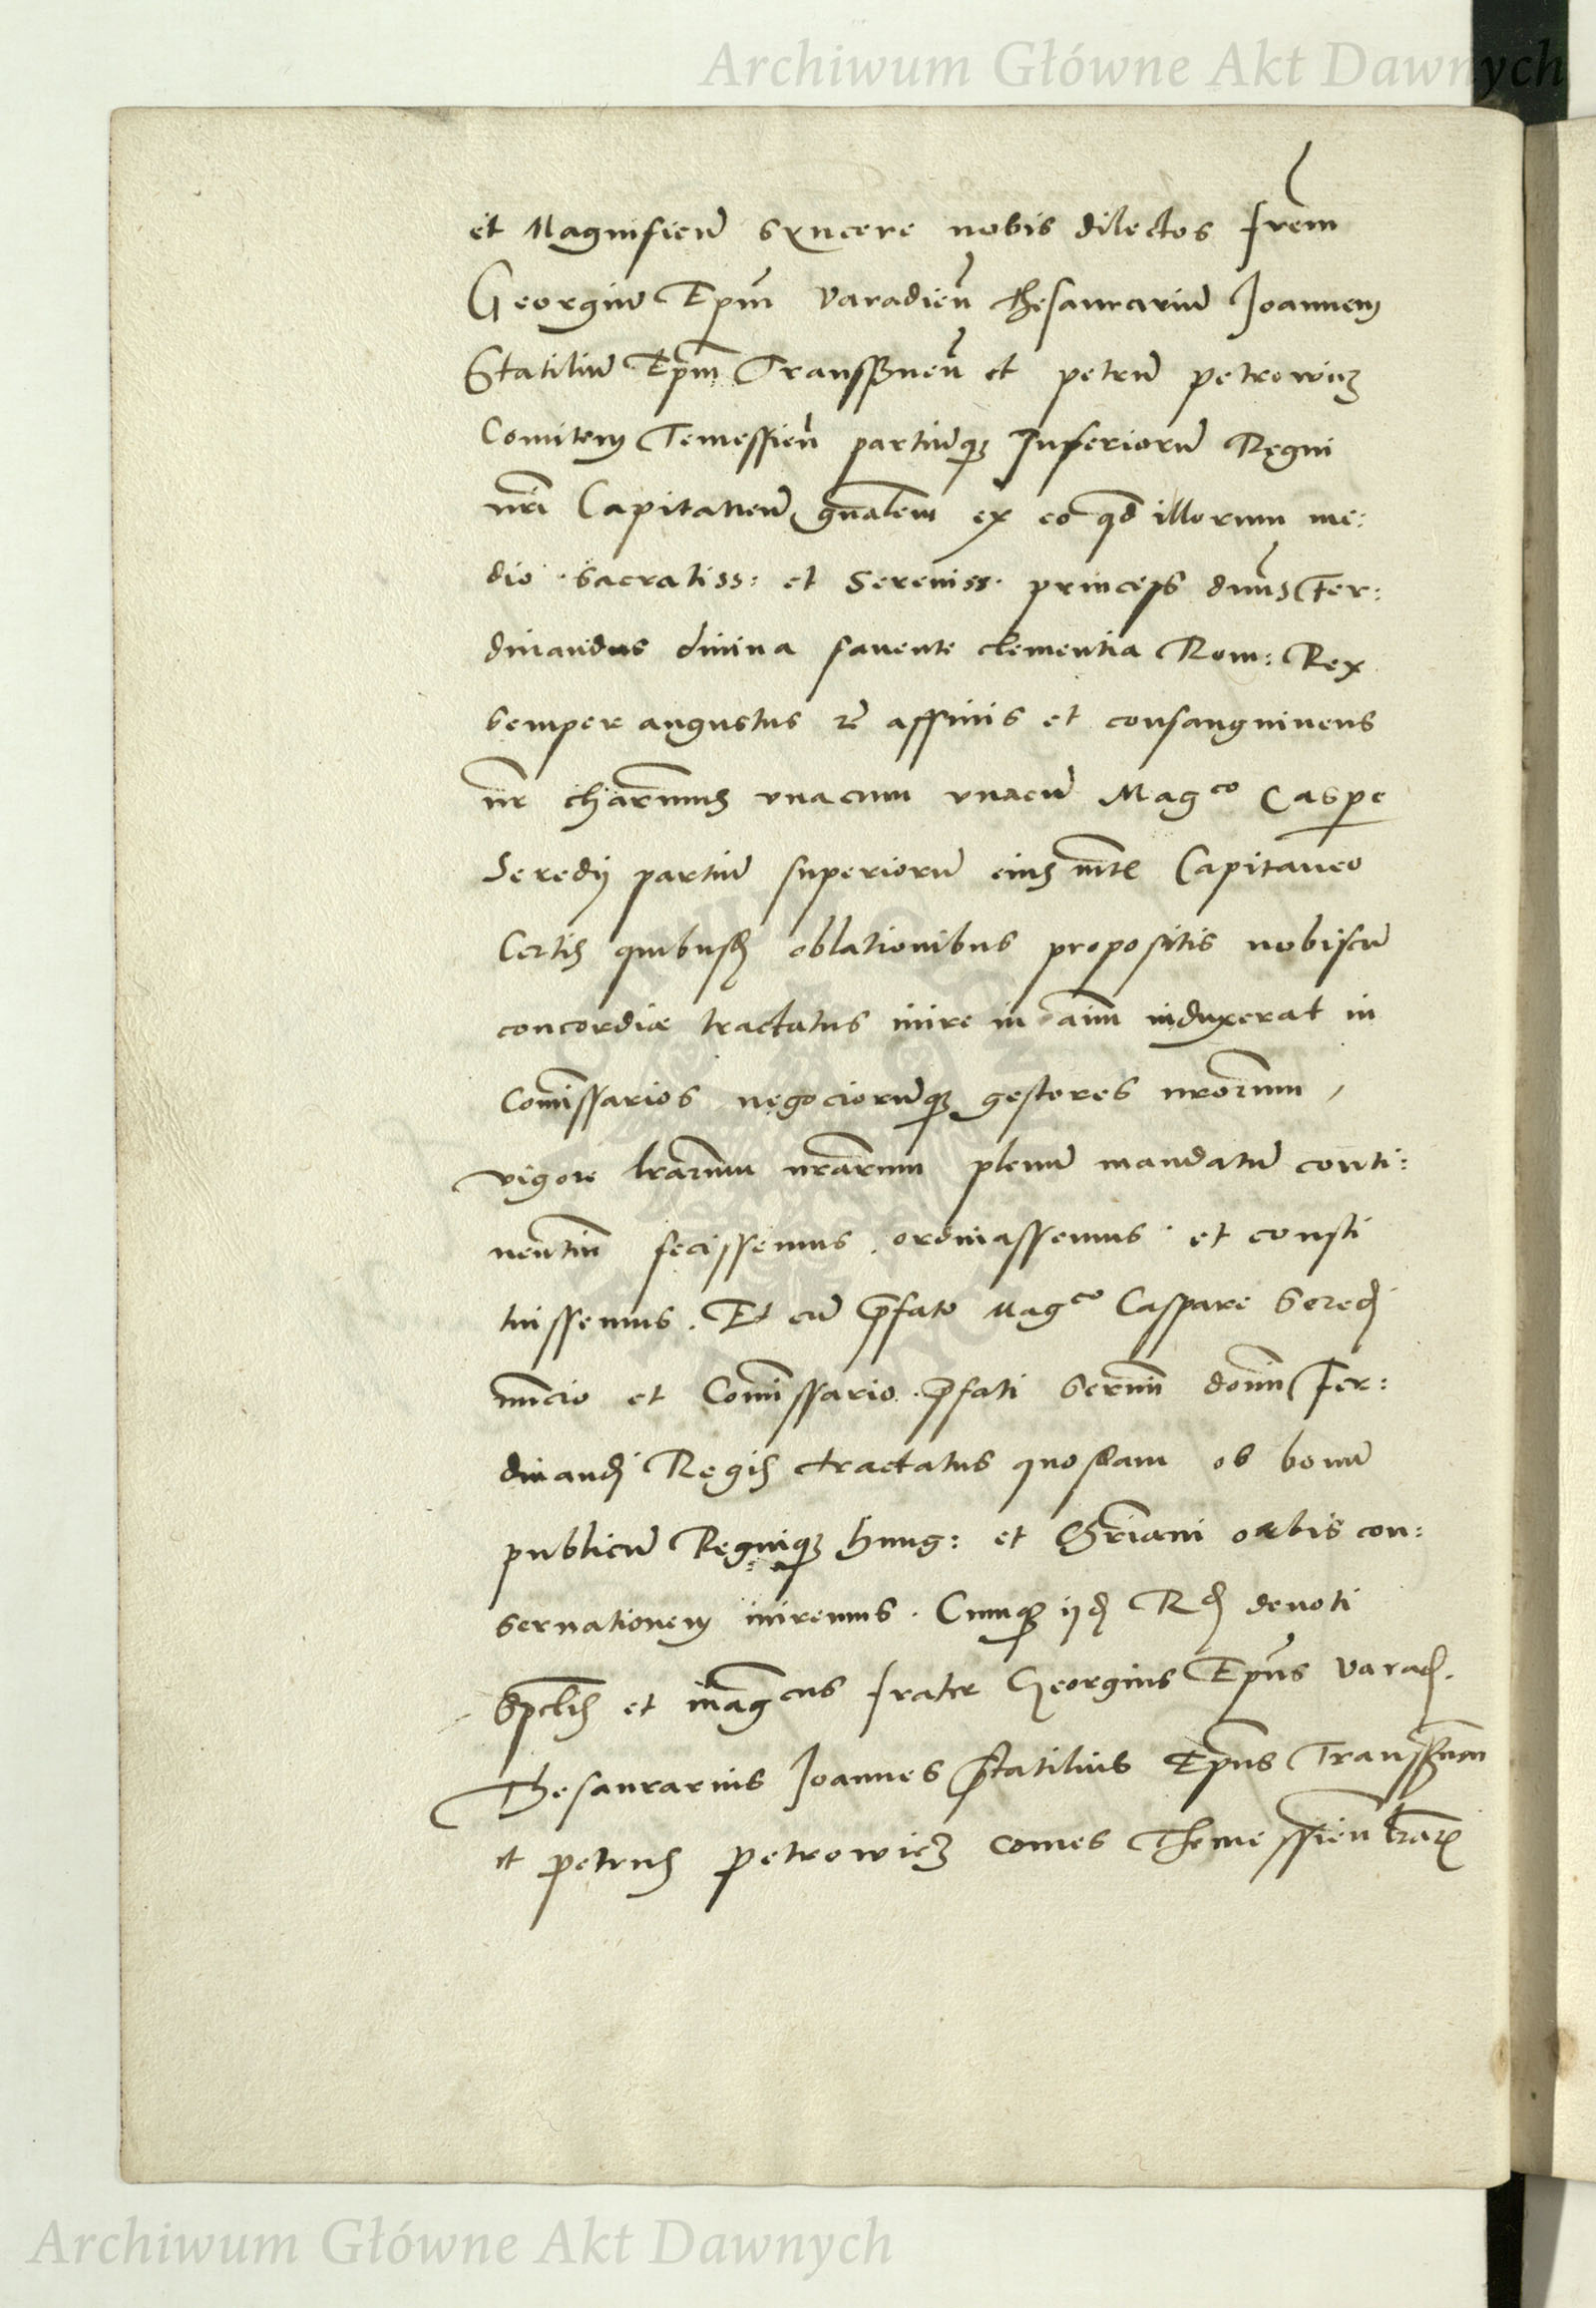 Archiwum Główne Akt Dawnych
et Magnificū sẏncere nobis dilectos frem̄
Georgiū Ep̄m Varadien̄ thesaurariū Joannem
Statiliū Ep̄m Transs̄ỳnen̄ et petrū petrowicz
Comitem Temessien̄ partiūq₃ Inferiorū Regni
nr̄i Capitaneū gn̄alem ex eo qd̄ illorum me:
dio sacratiss: et Sereniss. princeps dn̄us Fer:
dinandus diuina fauente clementia Rom: Rex
semper augustus ꝛc̄ affinis et consanguineus
nr̄ char̄mus vnacum vnacū Magco Caspe
Seredÿ partiū superiorū eius mt̄s Capitaneo
Certis quibusd oblationibus propositis nobiscū
concordiæ tractatus inire in aīm induxerat in
Com̄issarios negociorūq₃ gestores nr̄orum,
vigore lr̄arum nr̄arum plenū mandatū conti:
nentiū fecissemus . ordinassemus . et consti
tuissemus . Et cū p̄fato Magco Caspare Seredj
nuncio et Com̄issario p̄fati Serm̄i domī Fer:
dinandj Regis tractatus quosdam ob bonū
publicū Regniq₃ hung: et Chr̄iani orbis con:
seruationem iniremus . Cumq₃ ijd Rd deuoti
Sp̄cl̄is et magcus frater Georgius Ep̄us Varad.
Thesaurarius Joannes Statilius Ep̄us Transs̄ỳnen
et petrus petrowicz comes Themessien̄ lr̄aꝝ
Archiwum Główne Akt Dawnych